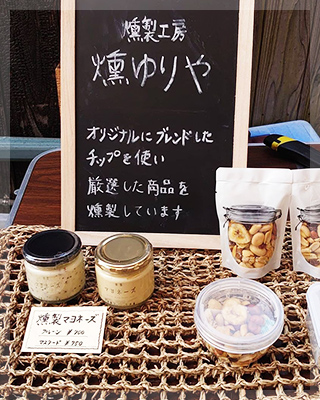 燻製工房
燻ゆりや
オリジナルにブレンドした
チップを使い
厳選した商品を
燻製しています
燻製マヨネーズ
プレーン ¥700
¥750